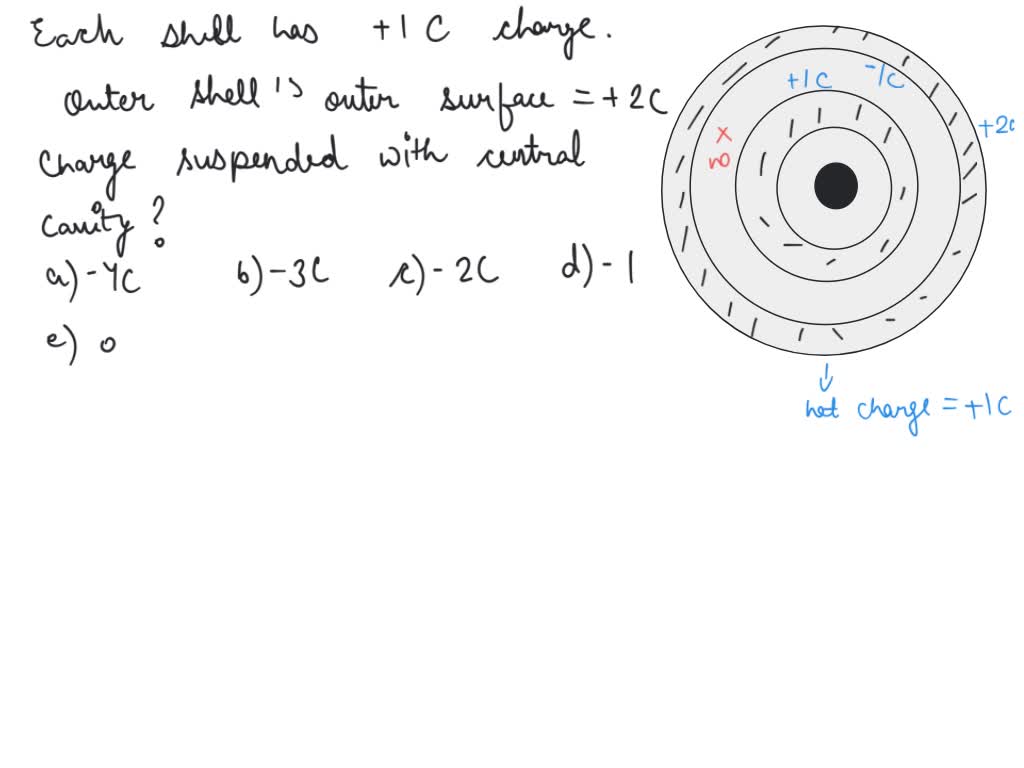 Each shell has +1 C charge.
Outer shell's outer surface = +2C
Charge suspended with central
cavity?
a) -4C b) -3C c) -2C d) -1
e) 0
+1C -1C
+2C
x
no
net charge = +1C